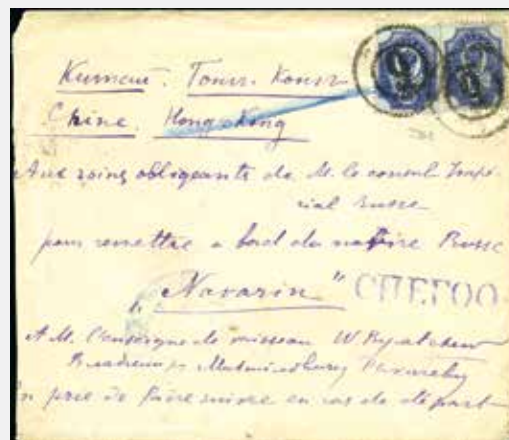 Китай. Гонг. Конг
Chine Hong-Kong
Aux soins obligeants de M. le consul Impé-
rial russe
pour remettre a bord du navire Russe
„Navarin“ СПЕГОО
A M. l'enseigne de vaisseau W
Владимиру
On prie de faire suivre en cas de départ